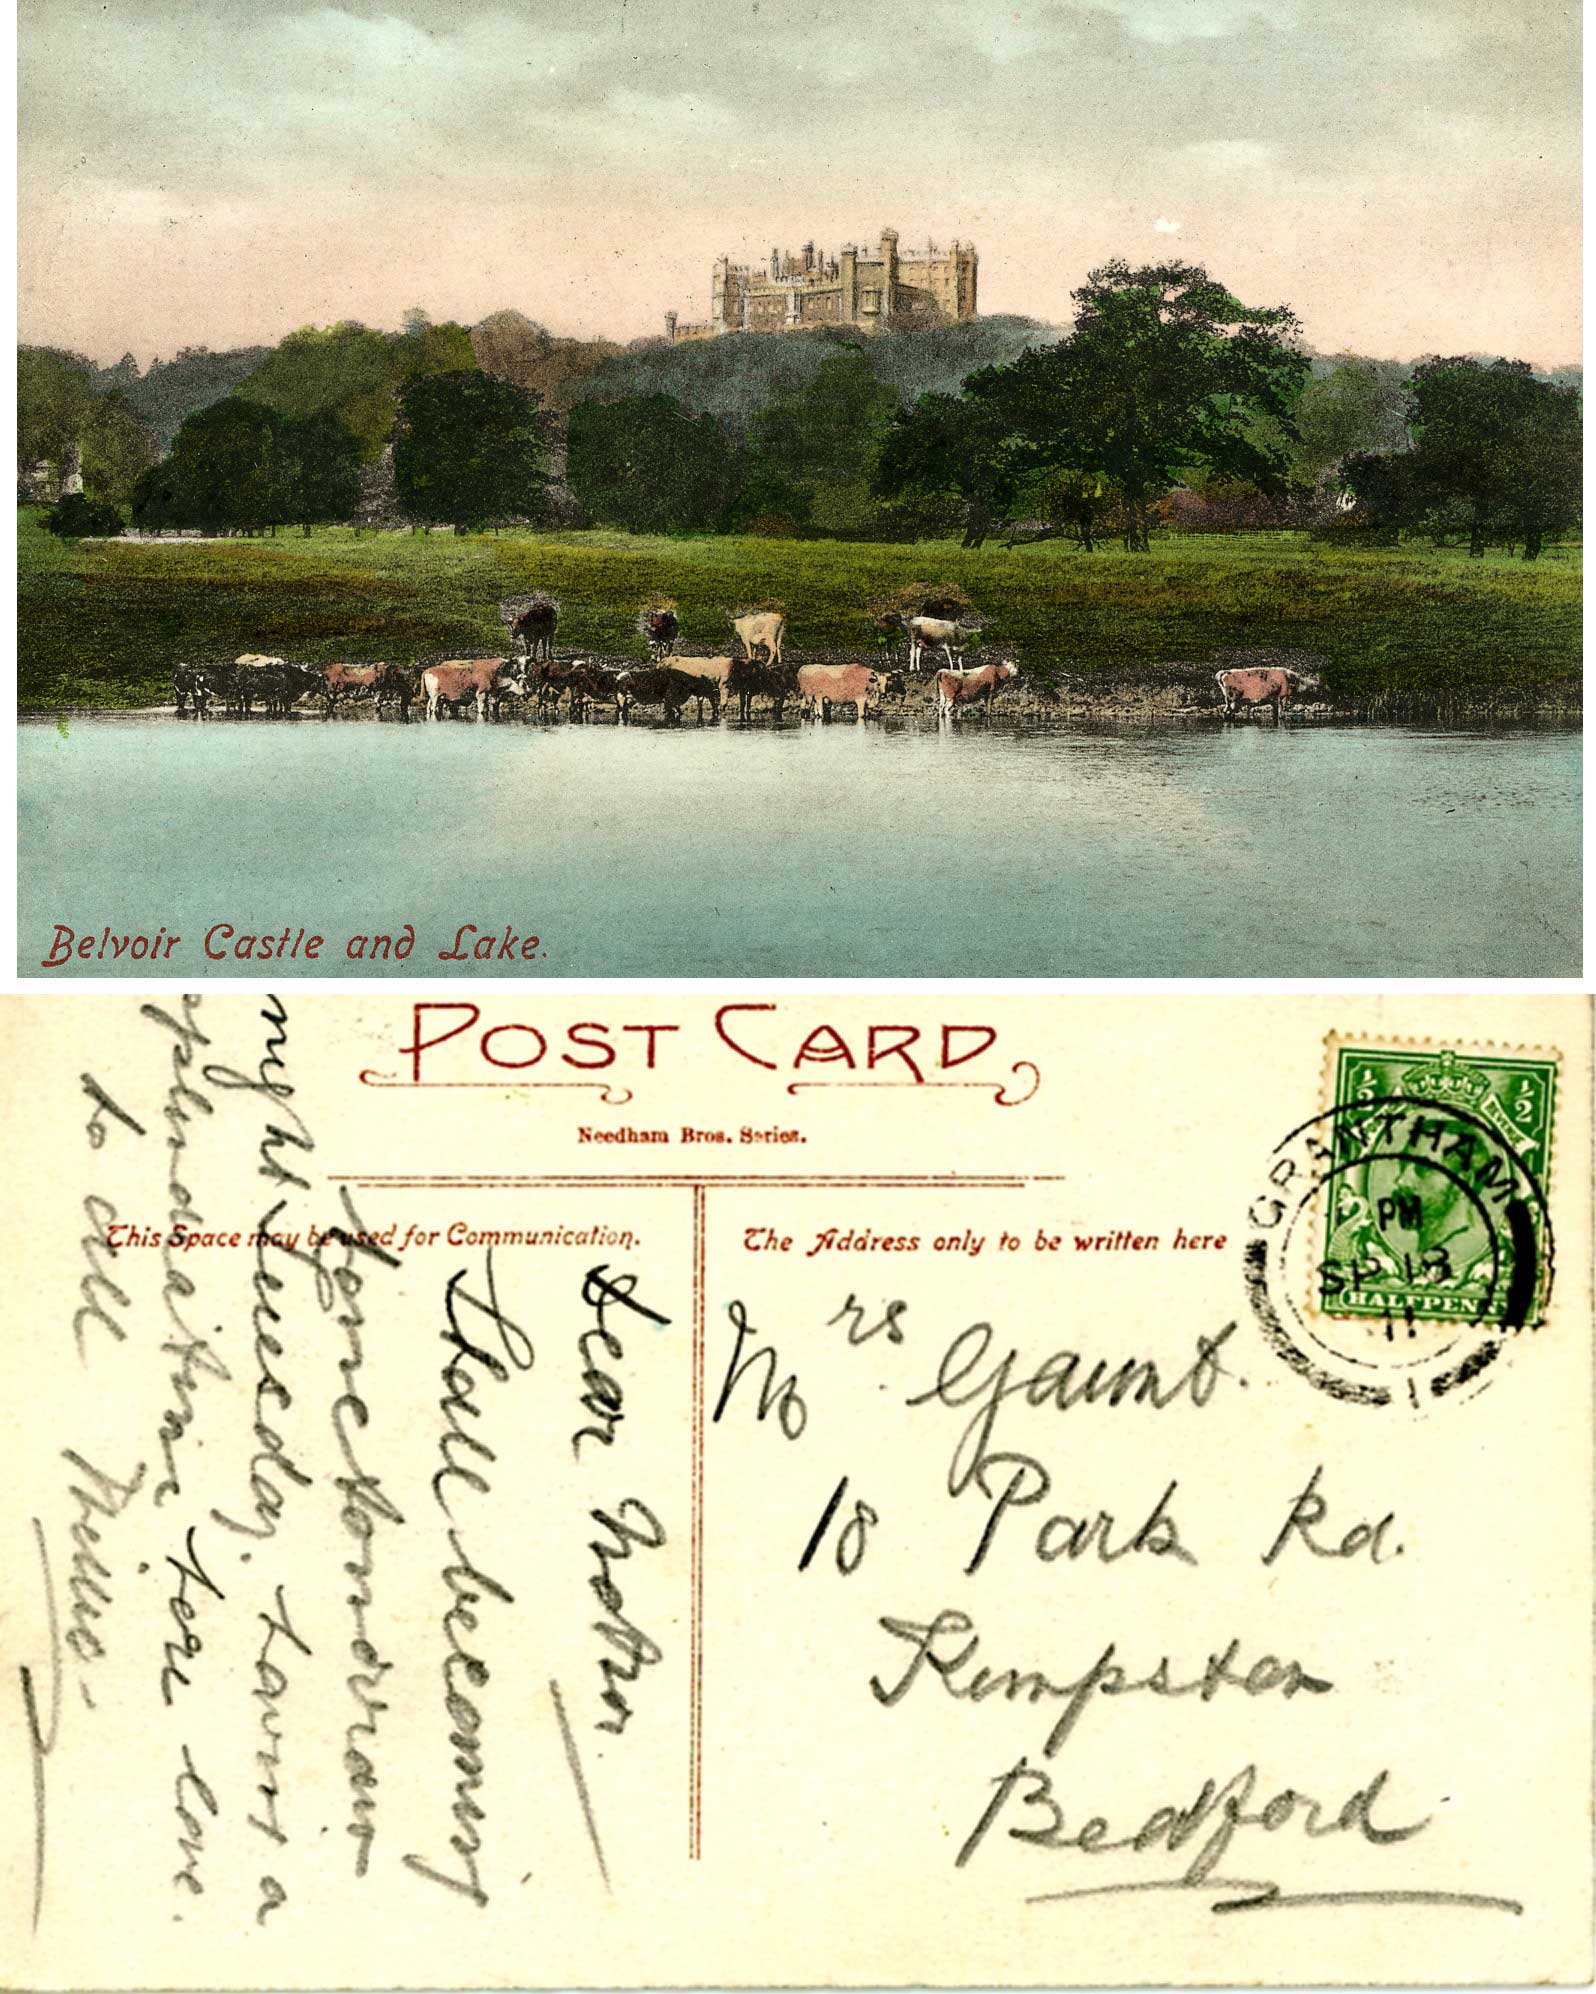 Belvoir Castle and Lake.
POST CARD
Needham Bros. Series.
This Space may be used for Communication.
The Address only to be written here
GRANTHAM
PM
SP 18
11
1
1/2
1/2
HALFPENNY
Dear Mother
Shall be coming
home tomorrow
night Tuesday. Having a
splendid time here love
to all
Mrs Gaunt.
18 Park Rd.
Kempston
Bedford